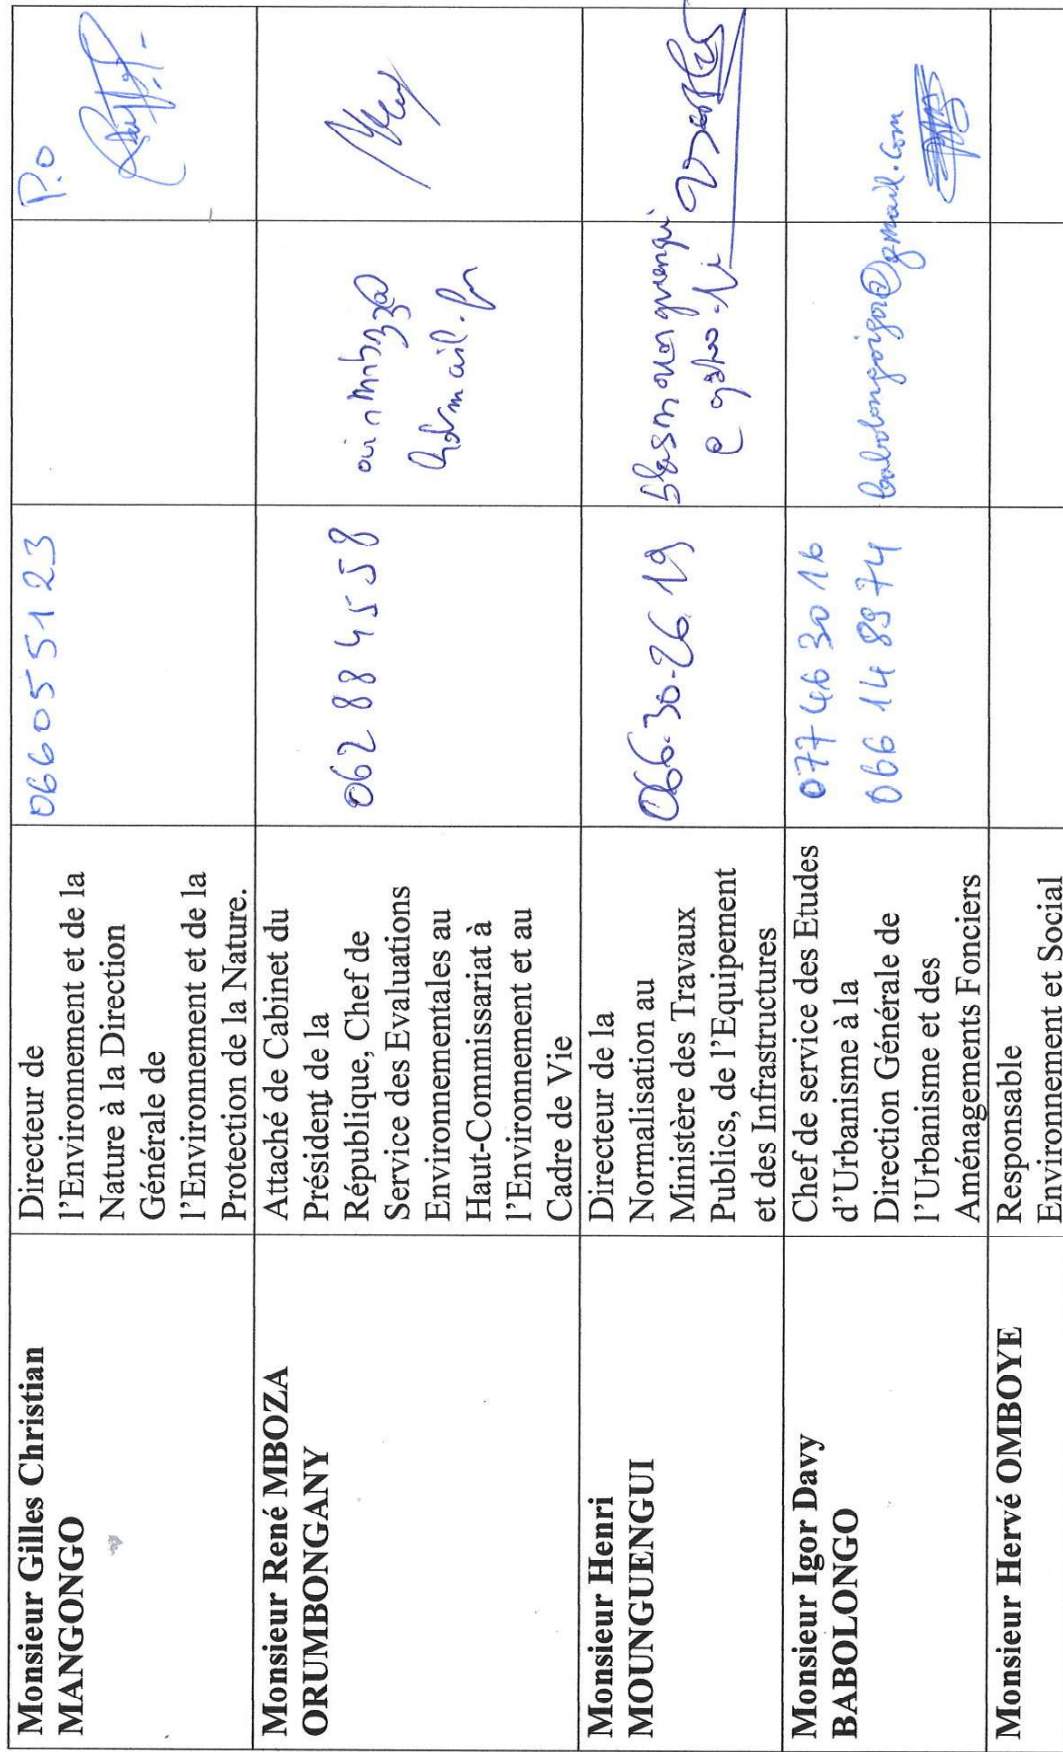 Monsieur Gilles Christian
MANGONGO
Directeur de
l'Environnement et de la
Nature à la Direction
Générale de
l'Environnement et de la
Protection de la Nature.
06605 51 23
P.o
Monsieur René MBOZA
ORUMBONGANY
Attaché de Cabinet du
Président de la
République, Chef de
Service des Evaluations
Environnementales au
Haut-Commissariat à
l'Environnement et au
Cadre de Vie
062 88 45 58
Monsieur Henri
MOUNGUENGUI
Directeur de la
Normalisation au
Ministère des Travaux
Publics, de l'Equipement
et des Infrastructures
066.30.26.19
Monsieur Igor Davy
BABOLONGO
Chef de service des Etudes
d'Urbanisme à la
Direction Générale de
l'Urbanisme et des
Aménagements Fonciers
077 46 30 16
066 14 89 74
babolongoigor@gmail.com
Monsieur Hervé OMBOYE
Responsable
Environnement et Social